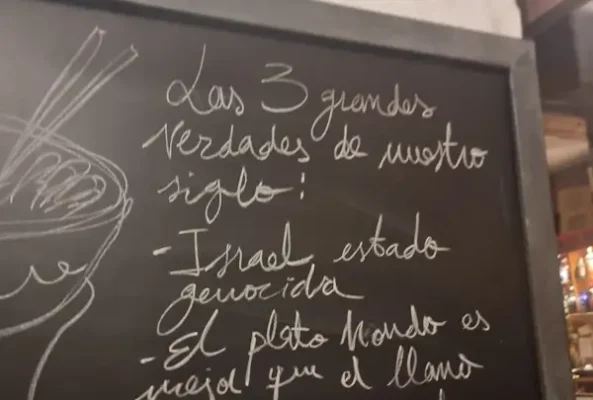 Las 3 grandes
verdades de nuestro
siglo:
- Israel estado
genocida
- El plato hondo es
mejor que el llano